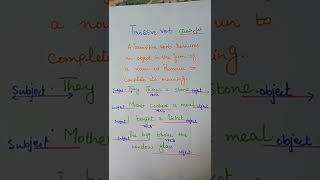 Transitive verb
A transitive verb requires
an object in the form of
a noun or Pronoun to
complete its meaning.
Subject They threw a stone object
verb
Subject Mother cooked a meal object
verb
Subject I bought a ticket object
verb
Subject The boy broke the
verb
window glass
object
a noun
complete
Subject They
stone
object
Subject: Mother
meal
object